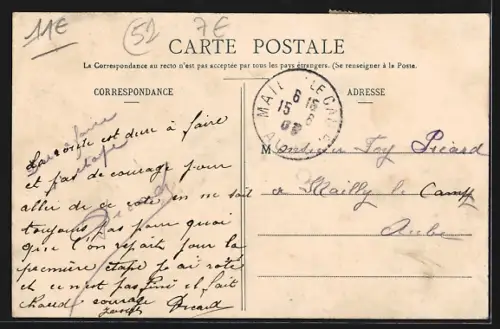 11€
(52)
7€
CARTE POSTALE
La Correspondance au recto n'est pas acceptée par tous les pays étrangers. (Se renseigner à la Poste.
CORRESPONDANCE
ADRESSE
MAILLY LE CAMP
6 15
15 6
La route est dure à faire
et pas de courage pour
aller de ce coté on ne sait
toujours pas pour quoi
que l'on repart pour la
première étape
et ce n'est pas fini et fait
chaud courage
Picard
Monsieur Foy Picard
a Mailly le Camp
Aube